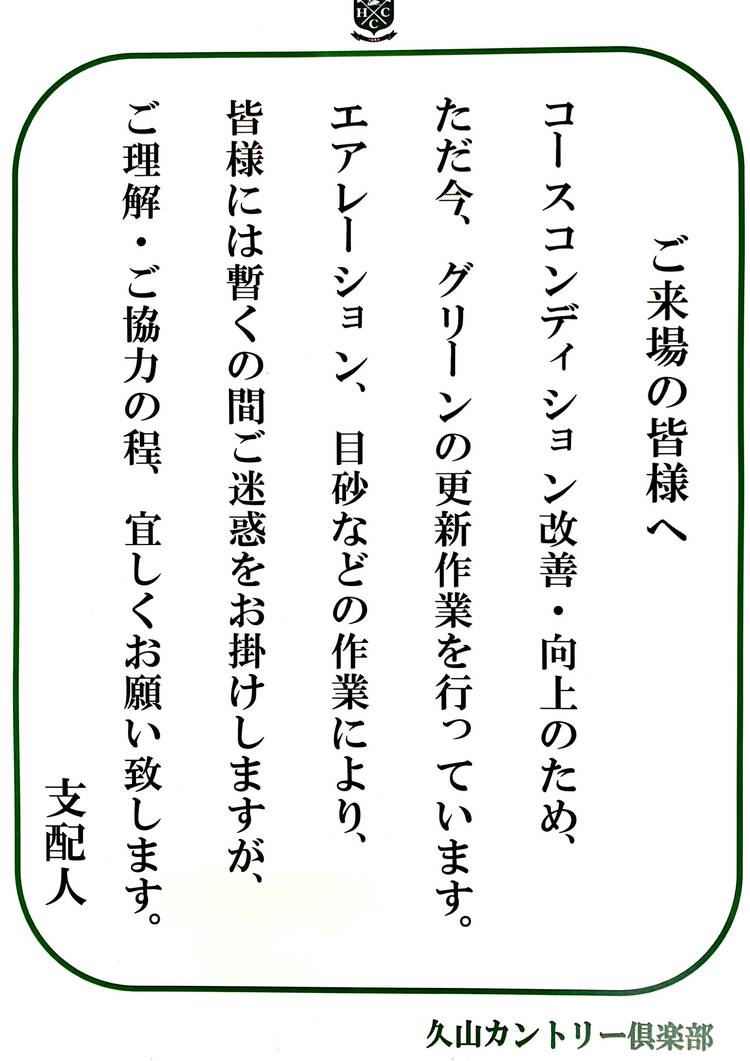 H C C
ご来場の皆様へ
コースコンディション改善・向上のため、
ただ今、グリーンの更新作業を行っています。
エアレーション、目砂などの作業により、
皆様には暫くの間ご迷惑をお掛けしますが、
ご理解・ご協力の程、宜しくお願い致します。
支配人
久山カントリー倶楽部